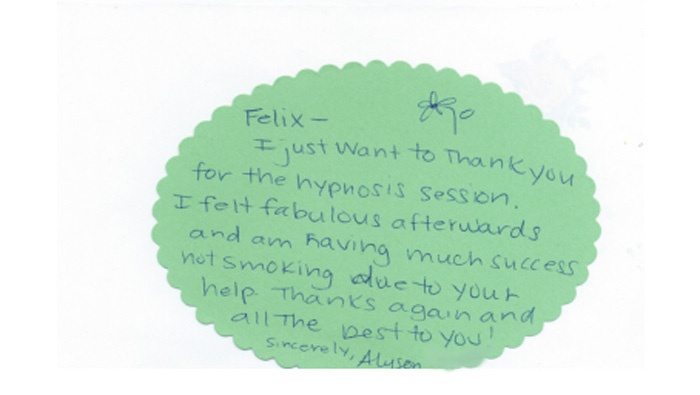 Felix-
I just want to Thank you
for the hypnosis session.
I felt fabulous afterwards
and am having much success
not smoking due to your
help. Thanks again and
all The best to you!
Sincerely, Alyson